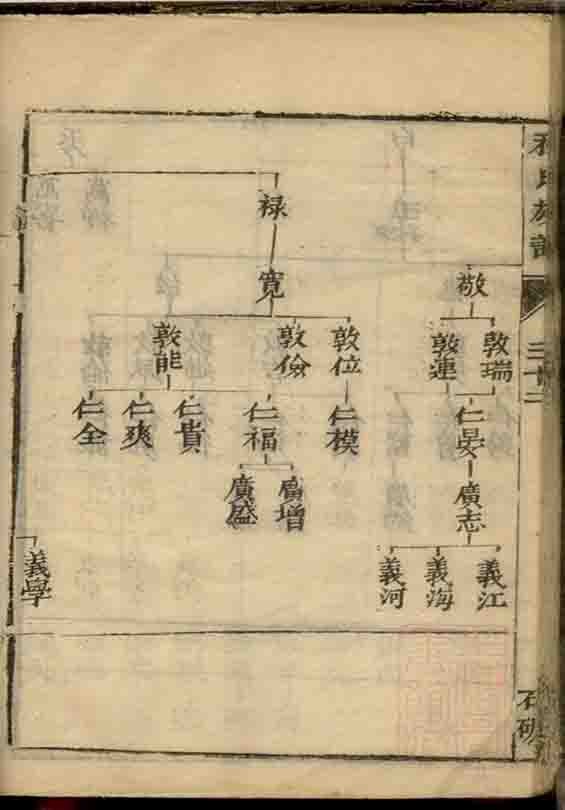 氏族譜
三十二
石硯
敬
敦瑞
敦連
仁晏
廣志
義江
義海
義河
祿
寬
敦位
敦儉
敦能
仁模
仁福
仁貴
仁爽
仁全
廣增
廣盛
義學